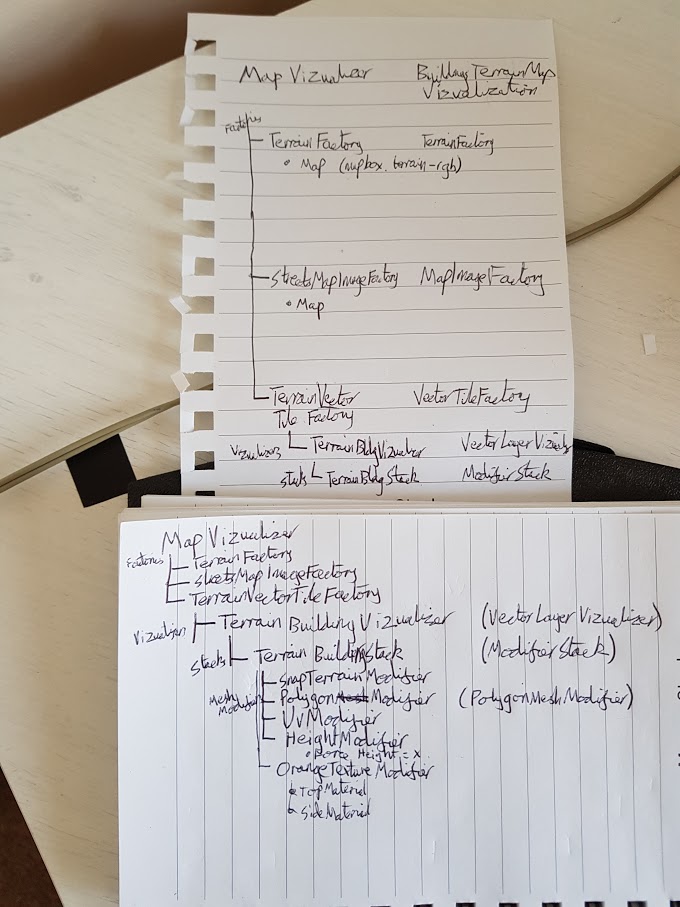 Map Vizualizer BuildingsTerrainMap
Vizualization
Factories
TerrainFactory TerrainFactory
• Map (mapbox.terrain-rgb)
StreetsMapImageFactory MapImageFactory
• Map
TerrainVector VectorTileFactory
Tile Factory
Vizualizers TerrainBldgVizualizer VectorLayerVizualizer
stacks TerrainBldgStack ModifierStack
Map Vizualizer
Factories TerrainFactory
StreetsMapImageFactory
TerrainVectorTileFactory
Vizualizers Terrain Building Vizualizer (VectorLayerVizualizer)
Stacks Terrain BuildingStack (ModifierStack)
SnapTerrainModifier
Mesh Modifiers PolygonMeshModifier (PolygonMeshModifier)
UvModifier
HeightModifier
• Force Height = x
OrangeTextureModifier
TopMaterial
SideMaterial